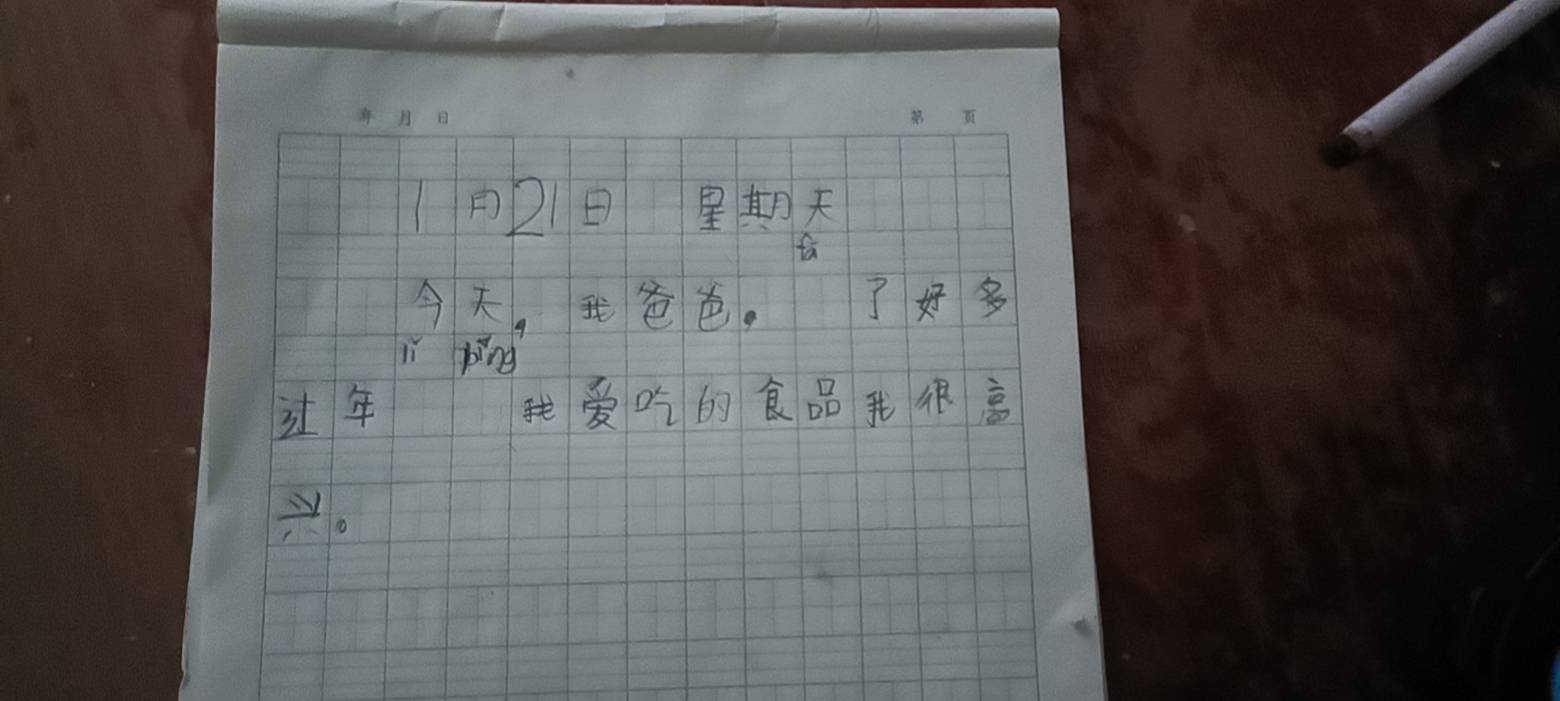 年 月 日 第 页
1月21日 星期天
fā
今天,我爸爸。 了好多
lǐ pǐng
过年 我爱吃的食品我很高
兴。